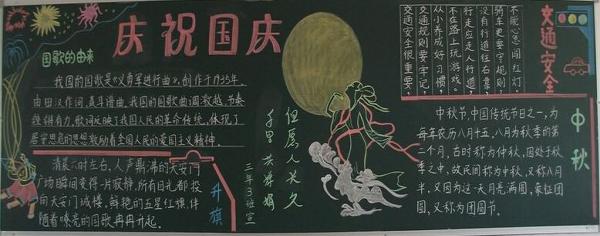 庆祝国庆
国歌的由来
我国的国歌是《义勇军进行曲》,创作于1935年,
由田汉作词,聂耳谱曲,我国的国歌曲调激越,节奏
铿锵有力,歌词反映了我国人民的革命传统,体现了
居安思危的思想激励着全国人民的爱国主义精神。
升旗
清晨六时左右,人声鼎沸的天安门
广场瞬间变得一片寂静,所有目光都投
向天安门城楼,鲜艳的五星红旗伴
随着嘹亮的国歌冉冉升起。
但愿人长久
千里共婵娟
三年3班宣
交通安全
不能心急闯红灯,
骑车更要守规则
没有行道往右靠,
行走应走人行道,
不在路上玩游戏。
从小养成好习惯,
交通规则要牢记,
交通安全很重要。
中秋
中秋节,中国传统节日之一,为
每年农历八月十五,八月为秋季的第
二个月,古时称为仲秋,因处于秋
季之中,故民间称为中秋,又称八月
半,又因为这一天月亮满圆,象征团
圆,又称为团圆节。